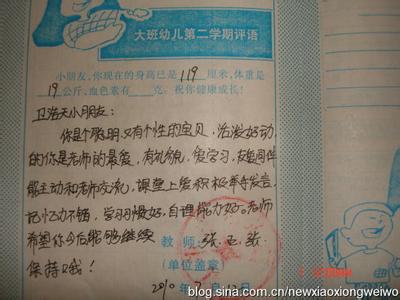 大班幼儿第二学期评语
小朋友,你现在的身高已是119厘米,体重是
19公斤,血色素有 克。祝你健康成长!
卫浩天小朋友:
你是个聪明又有个性的宝贝,活泼好动
的你是老师的最爱,有礼貌,爱学习,友爱同伴
能主动和老师交流,课堂上爱积极举手发言,
记忆力不错,学习习惯好,自理能力好。老师
希望你今后能够继续 教师:张 张
保持哦!
(单位盖章)
2010年7月12日
blog.sina.com.cn/newxiaoxiongweiwo